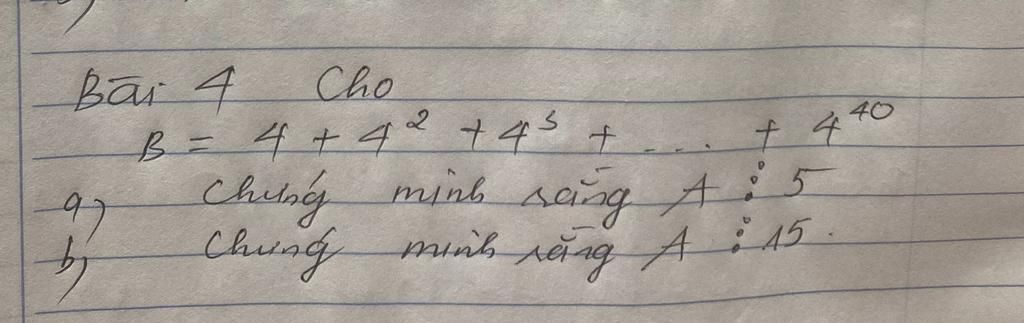 Bài 4 Cho
B = 4 + 4² + 4³ + .... + 4⁴⁰
a) Chứng minh rằng A ⋮ 5
b) Chứng minh rằng A ⋮ 15.